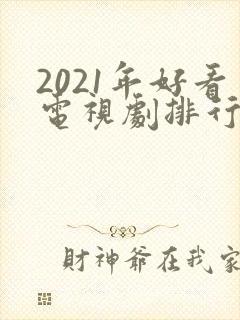 2021年好看
電視劇排行
財神爺在我家